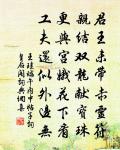 君王未帶赤靈符
親結雙龍獻寶珠
更與宮娥花下看
工夫還似外邊無
王珪端午內中帖子詞
皇后閣詞典網集